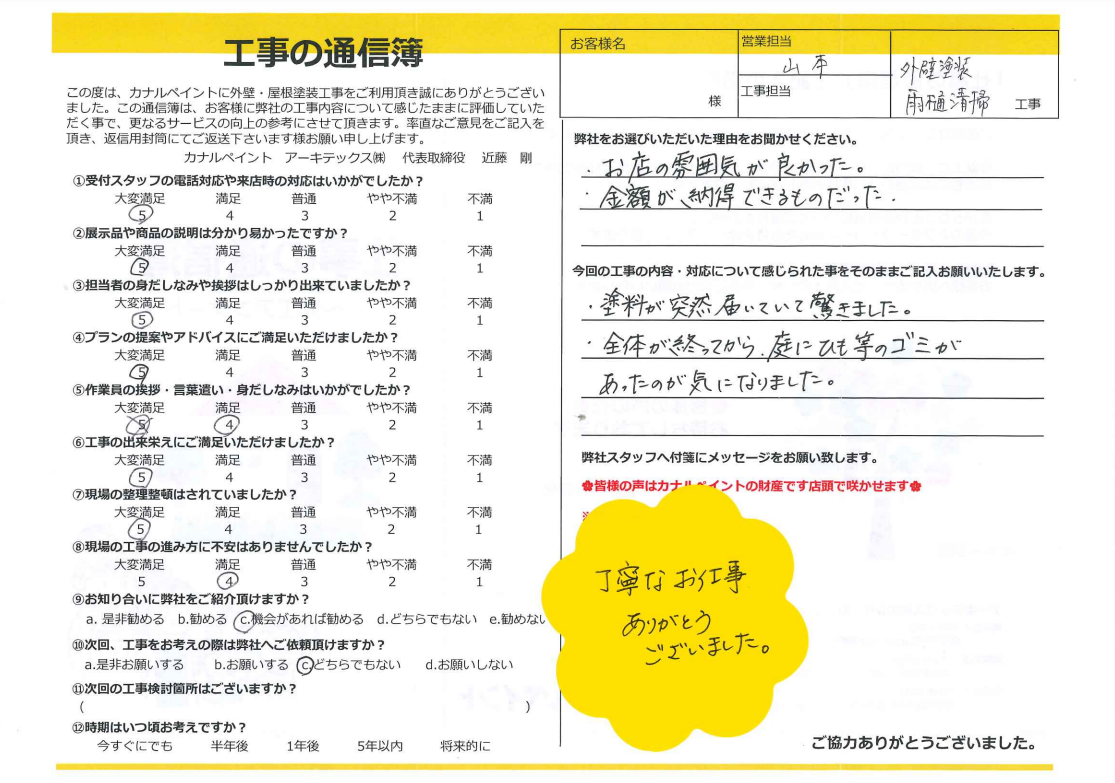 工事の通信簿
この度は、カナルペイントに外壁・屋根塗装工事をご利用頂き誠にありがとうござい
ました。この通信簿は、お客様に弊社の工事内容について感じたままに評価していた
だく事で、更なるサービスの向上の参考にさせて頂きます。率直なご意見をご記入を
頂き、返信用封筒にてご返送下さいます様お願い申し上げます。
カナルペイント アーキテックス㈱ 代表取締役 近藤 剛
①受付スタッフの電話対応や来店時の対応はいかがでしたか？
大変満足 満足 普通 やや不満 不満
5 4 3 2 1
②展示品や商品の説明は分かり易かったですか？
大変満足 満足 普通 やや不満 不満
5 4 3 2 1
③担当者の身だしなみや挨拶はしっかり出来ていましたか？
大変満足 満足 普通 やや不満 不満
5 4 3 2 1
④プランの提案やアドバイスにご満足いただけましたか？
大変満足 満足 普通 やや不満 不満
5 4 3 2 1
⑤作業員の挨拶・言葉遣い・身だしなみはいかがでしたか？
大変満足 満足 普通 やや不満 不満
5 4 3 2 1
⑥工事の出来栄えにご満足いただけましたか？
大変満足 満足 普通 やや不満 不満
5 4 3 2 1
⑦現場の整理整頓はされていましたか？
大変満足 満足 普通 やや不満 不満
5 4 3 2 1
⑧現場の工事の進み方に不安はありませんでしたか？
大変満足 満足 普通 やや不満 不満
5 4 3 2 1
⑨お知り合いに弊社をご紹介頂けますか？
a. 是非勧める b.勧める c.機会があれば勧める d.どちらでもない e.勧めない
⑩次回、工事をお考えの際は弊社へご依頼頂けますか？
a.是非お願いする b.お願いする c.どちらでもない d.お願いしない
⑪次回の工事検討箇所はございますか？
( )
⑫時期はいつ頃お考えですか？
今すぐにでも 半年後 1年後 5年以内 将来的に
お客様名
様
営業担当
山本
工事担当
外壁塗装
雨樋清掃 工事
弊社をお選びいただいた理由をお聞かせください。
・お店の雰囲気が良かった。
・金額が納得できるものだった.
今回の工事の内容・対応について感じられた事をそのままご記入お願いいたします。
・塗料が突然届いていて驚きました。
・全体が終ってから、庭にひも等のゴミが
あったのが気になりました。
弊社スタッフへ付箋にメッセージをお願い致します。
✿皆様の声はカナルペイントの財産です店頭で咲かせます✿
丁寧なお仕事
ありがとう
ございました。
ご協力ありがとうございました。